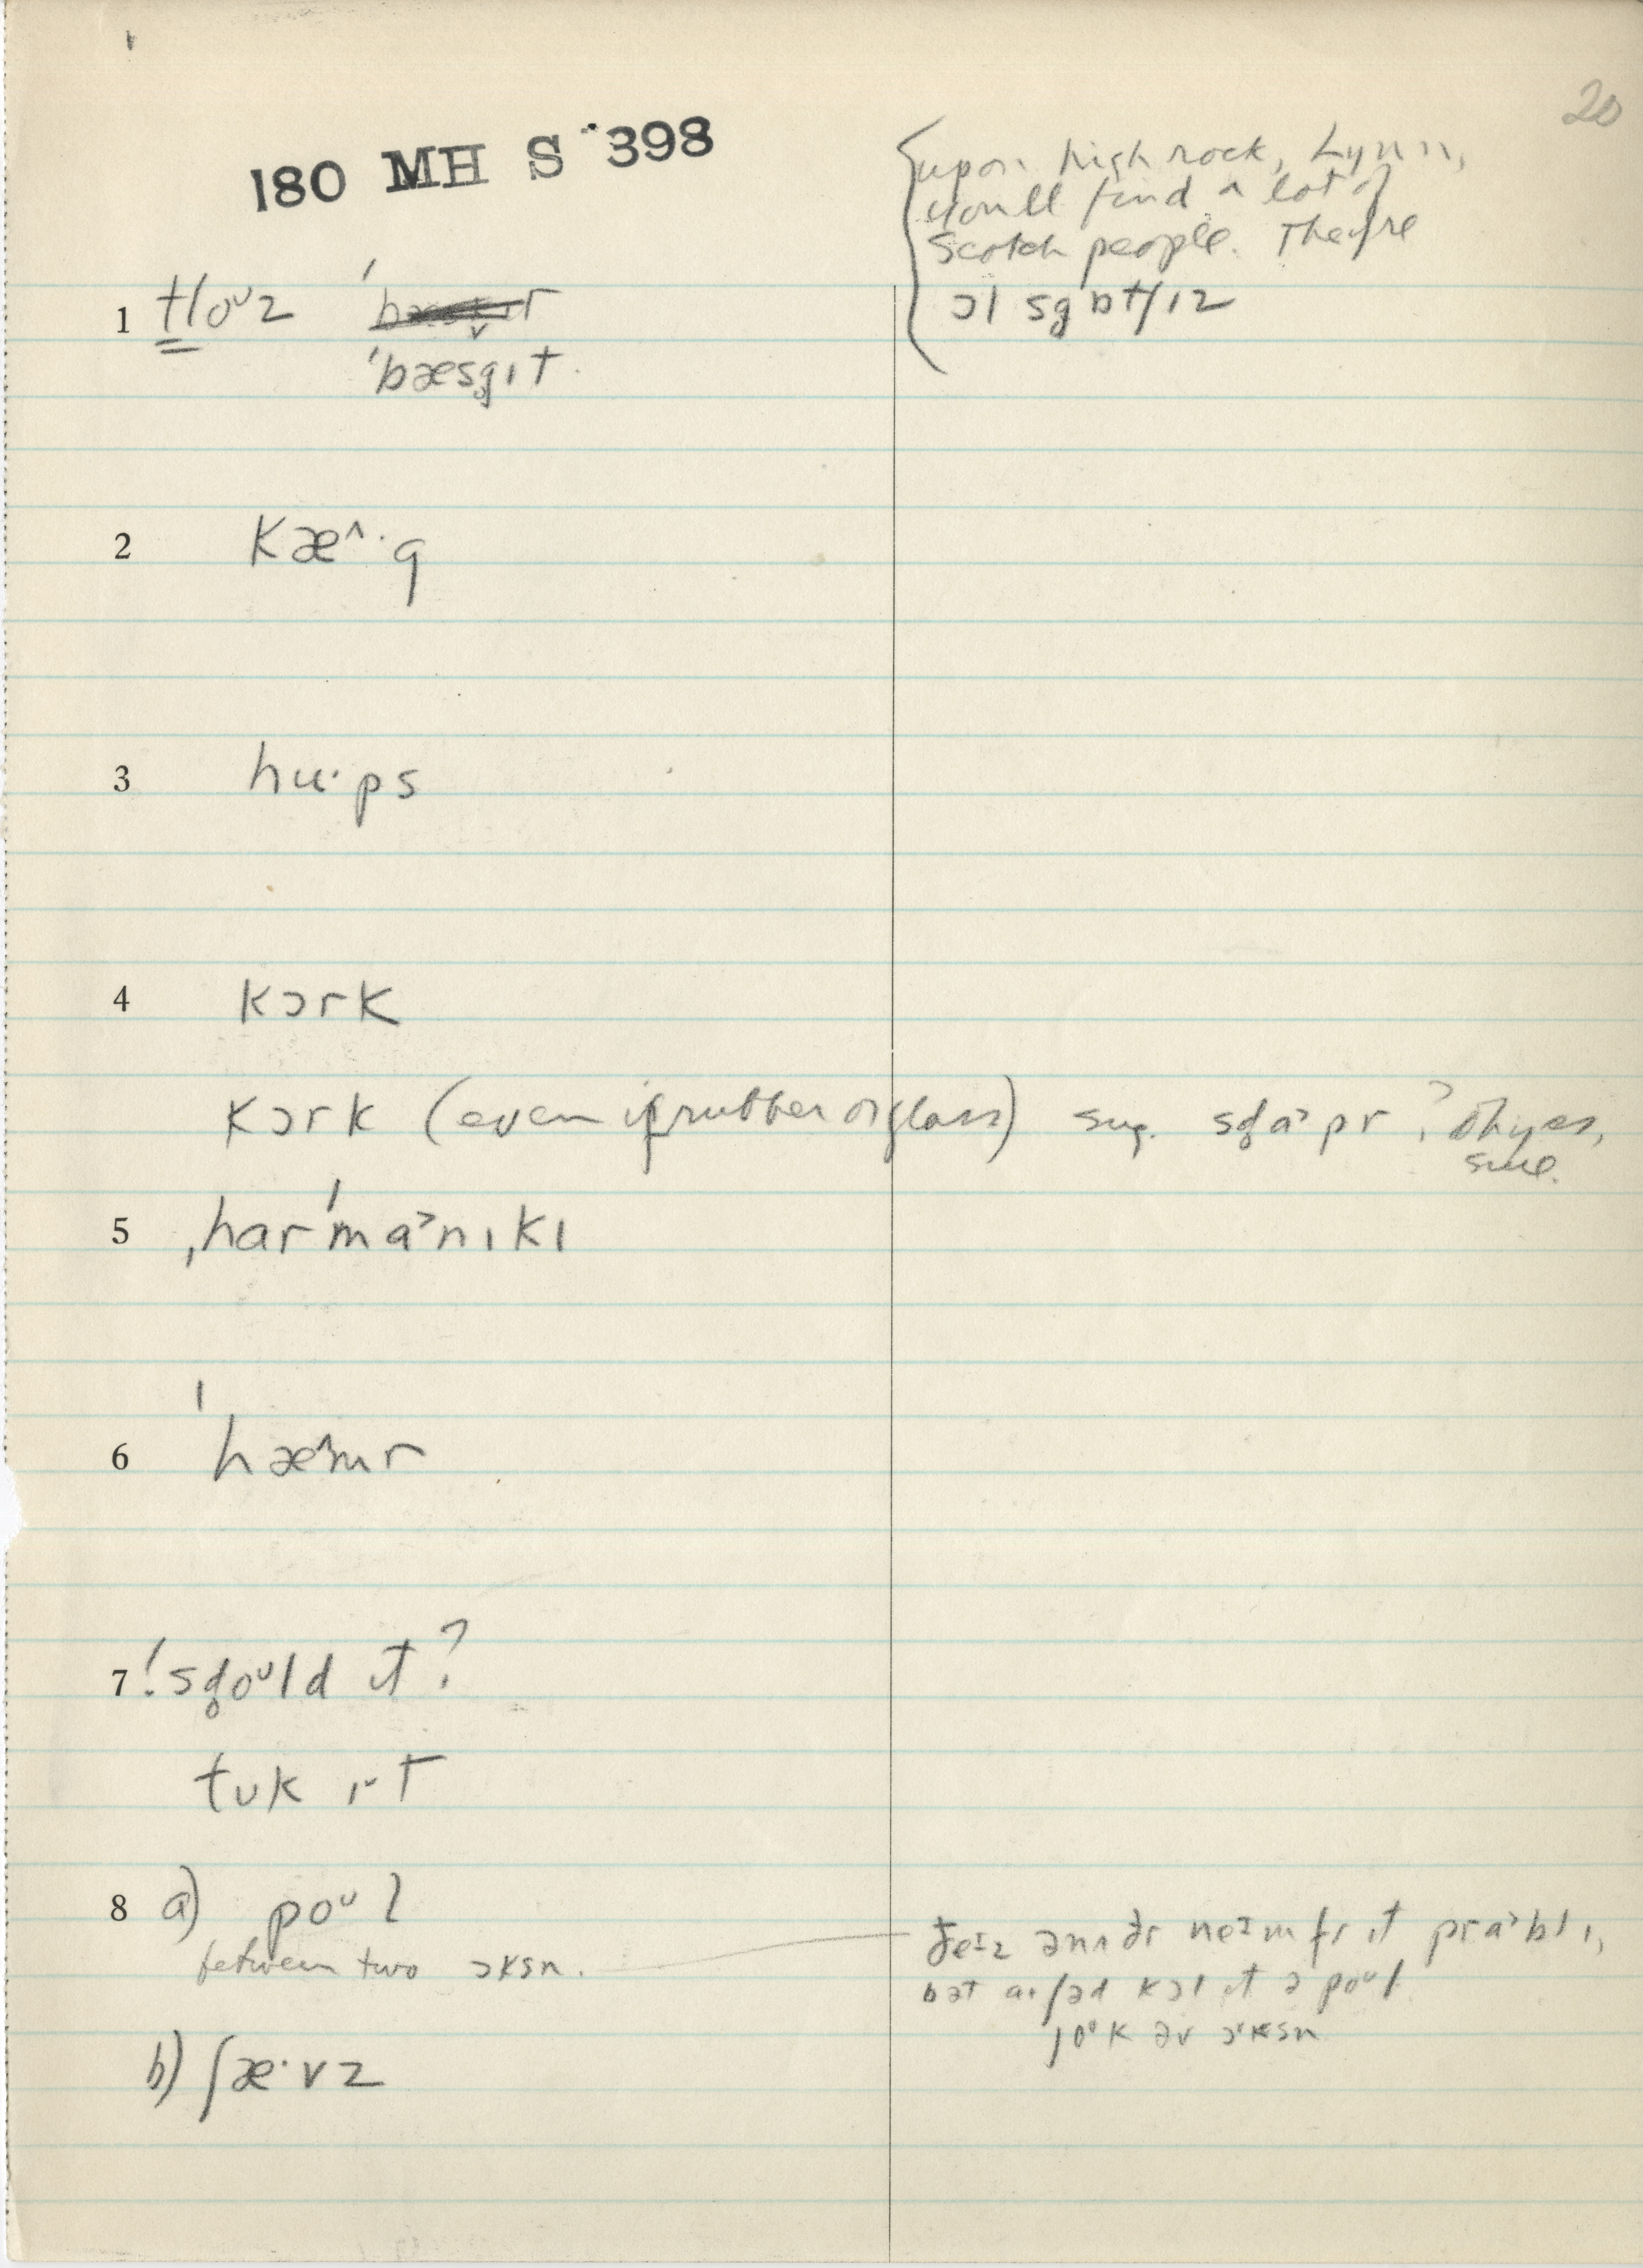 20
180 MH S 398
upon high rock, Lynn,
you'll find a lot of
Scotch people. They're
ɔl sg̥ɒtʃɪz
1 tloᶷz
ˈbæsg̥ɪt.
2 kæ^·g
3 hu·ps
4 kɔrk
kɔrk (even if rubber or glass) sug. sd̥a˃pr ? Oh yes,
sure.
5 ˌharˈma˃nɪkɪ
6 ˈhæ^mr
7 ! sd̥oᶷld ɪt ?
tʊk ɪt
8 a) poᶷl
between two ɔksn.
ðeɪz ənʌðr neɪm fr ɪt pra˃blɪ,
bət kɔl ɪt ə poᶷl
joᶷk əv ɔksn
b) ʃæ·vz